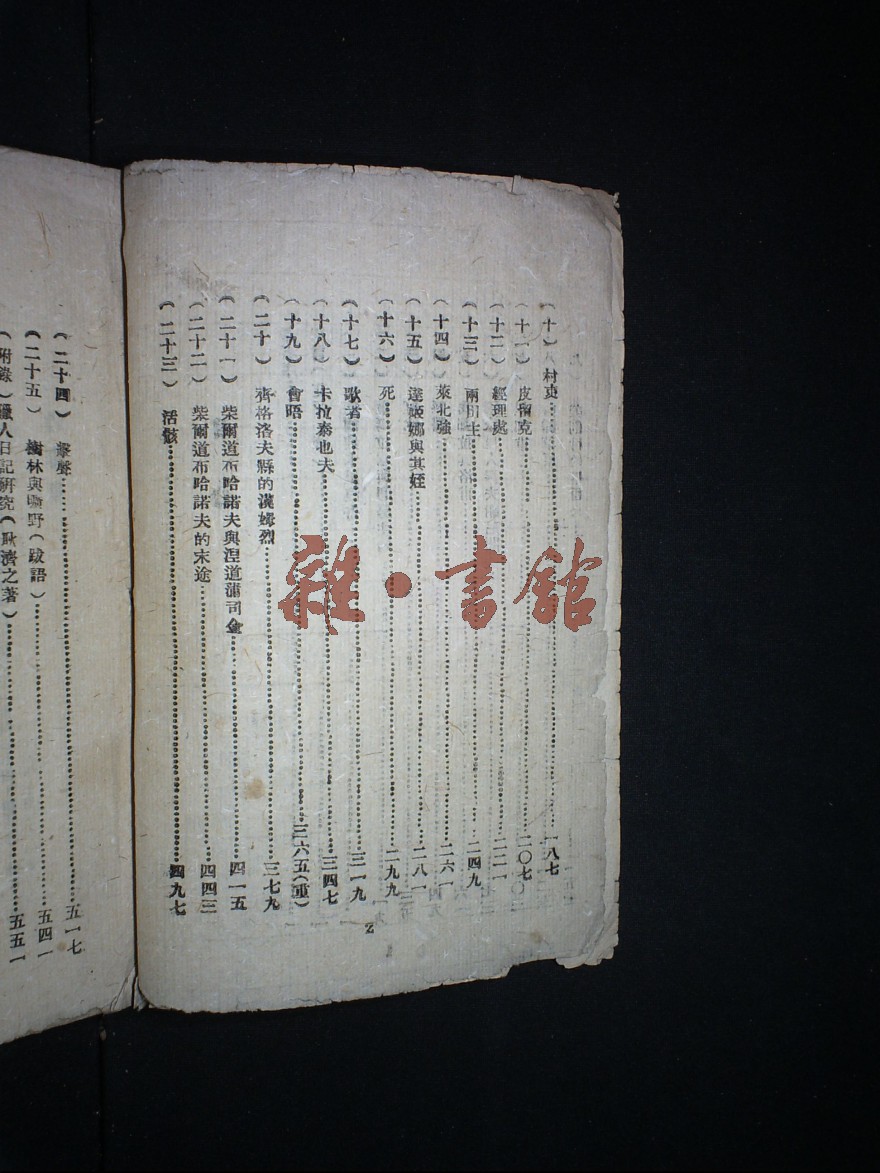 （十）村吏……一八七
（十一）皮留克……二〇七
（十二）經理處……二二一
（十三）兩田主……二四九
（十四）萊北強……二六一
（十五）達姬娜與其姪……二八一
（十六）死……二九九
（十七）歌者……三一九
（十八）卡拉泰也夫……三四七
（十九）會晤……三六五（重）
（二十）齊格洛夫縣的漢姆烈……三七九
（二十一）柴爾道布哈諾夫與涅道蒲司金……四一五
（二十二）柴爾道布哈諾夫的末途……四四三
（二十三）活骸……四九七
2
（二十四）……五一七
（二十五）樹林與曠野（跋語）……五四一
（附錄）獵人日記研究（耿濟之著）……五五一
雜·書館